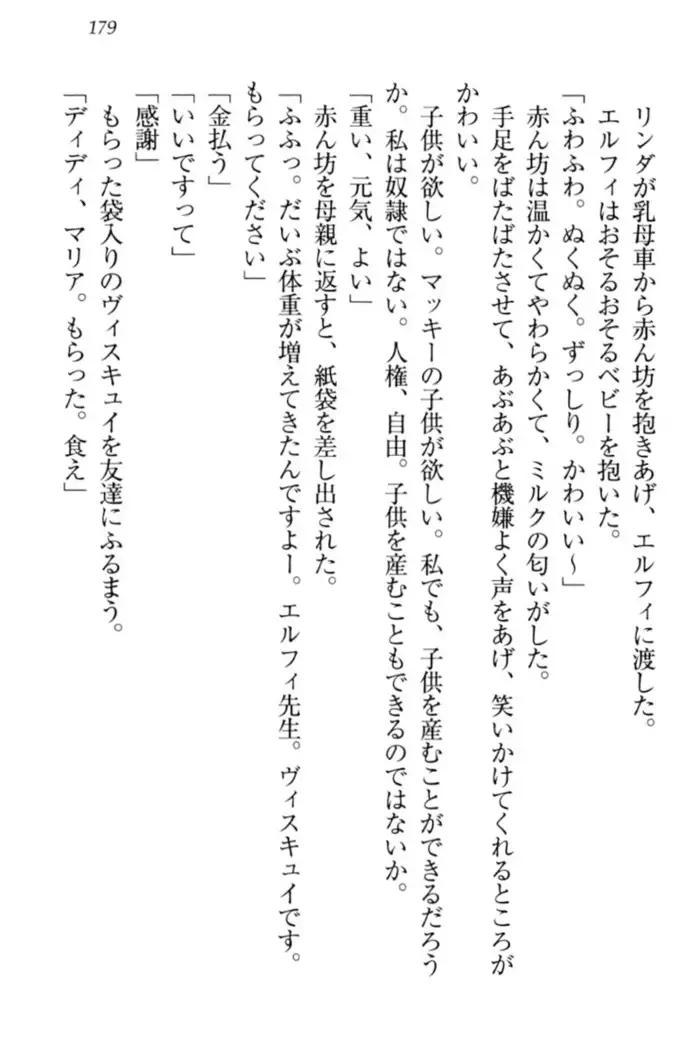 179
リンダが乳母車から赤ん坊を抱きあげ、エルフィに渡した。
エルフィはおそるおそるベビーを抱いた。
「ふわふわ。ぬくぬく。ずっしり。かわいい～」
赤ん坊は温かくてやわらかくて、ミルクの匂いがした。
手足をばたばたさせて、あぶあぶと機嫌よく声をあげ、笑いかけてくれるところが
かわいい。
子供が欲しい。マッキーの子供が欲しい。私でも、子供を産むことができるだろう
か。私は奴隷ではない。人権、自由。子供を産むこともできるのではないか。
「重い、元気、よい」
赤ん坊を母親に返すと、紙袋を差し出された。
「ふふっ。だいぶ体重が増えてきたんですよー。エルフィ先生。ヴィスキュイです。
もらってください」
「金払う」
「いいですって」
「感謝」
もらった袋入りのヴィスキュイを友達にふるまう。
「ディディ、マリア。もらった。食え」